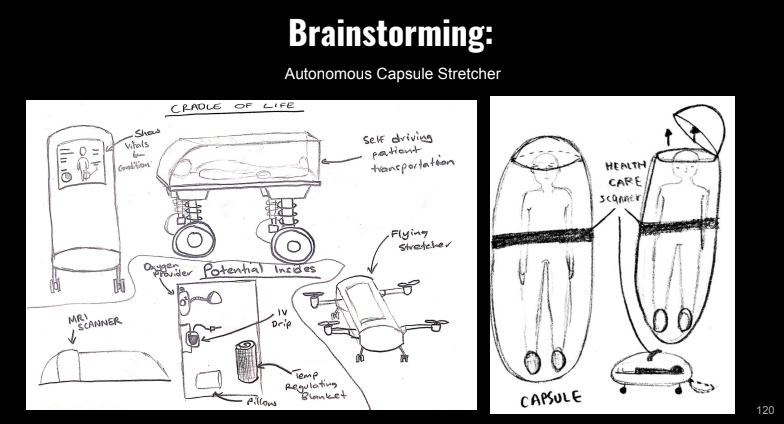 Brainstorming:
Autonomous Capsule Stretcher
CRADLE OF LIFE
Shows
Vitals
&
Condition
Self driving
patient
transportation
Flying
Stretcher
Oxygen
Provider
Potential Insides
MRI
SCANNER
IV
Drip
Temp
Regulating
Blanket
Pillow
HEALTH
CARE
SCANNER
CAPSULE
120